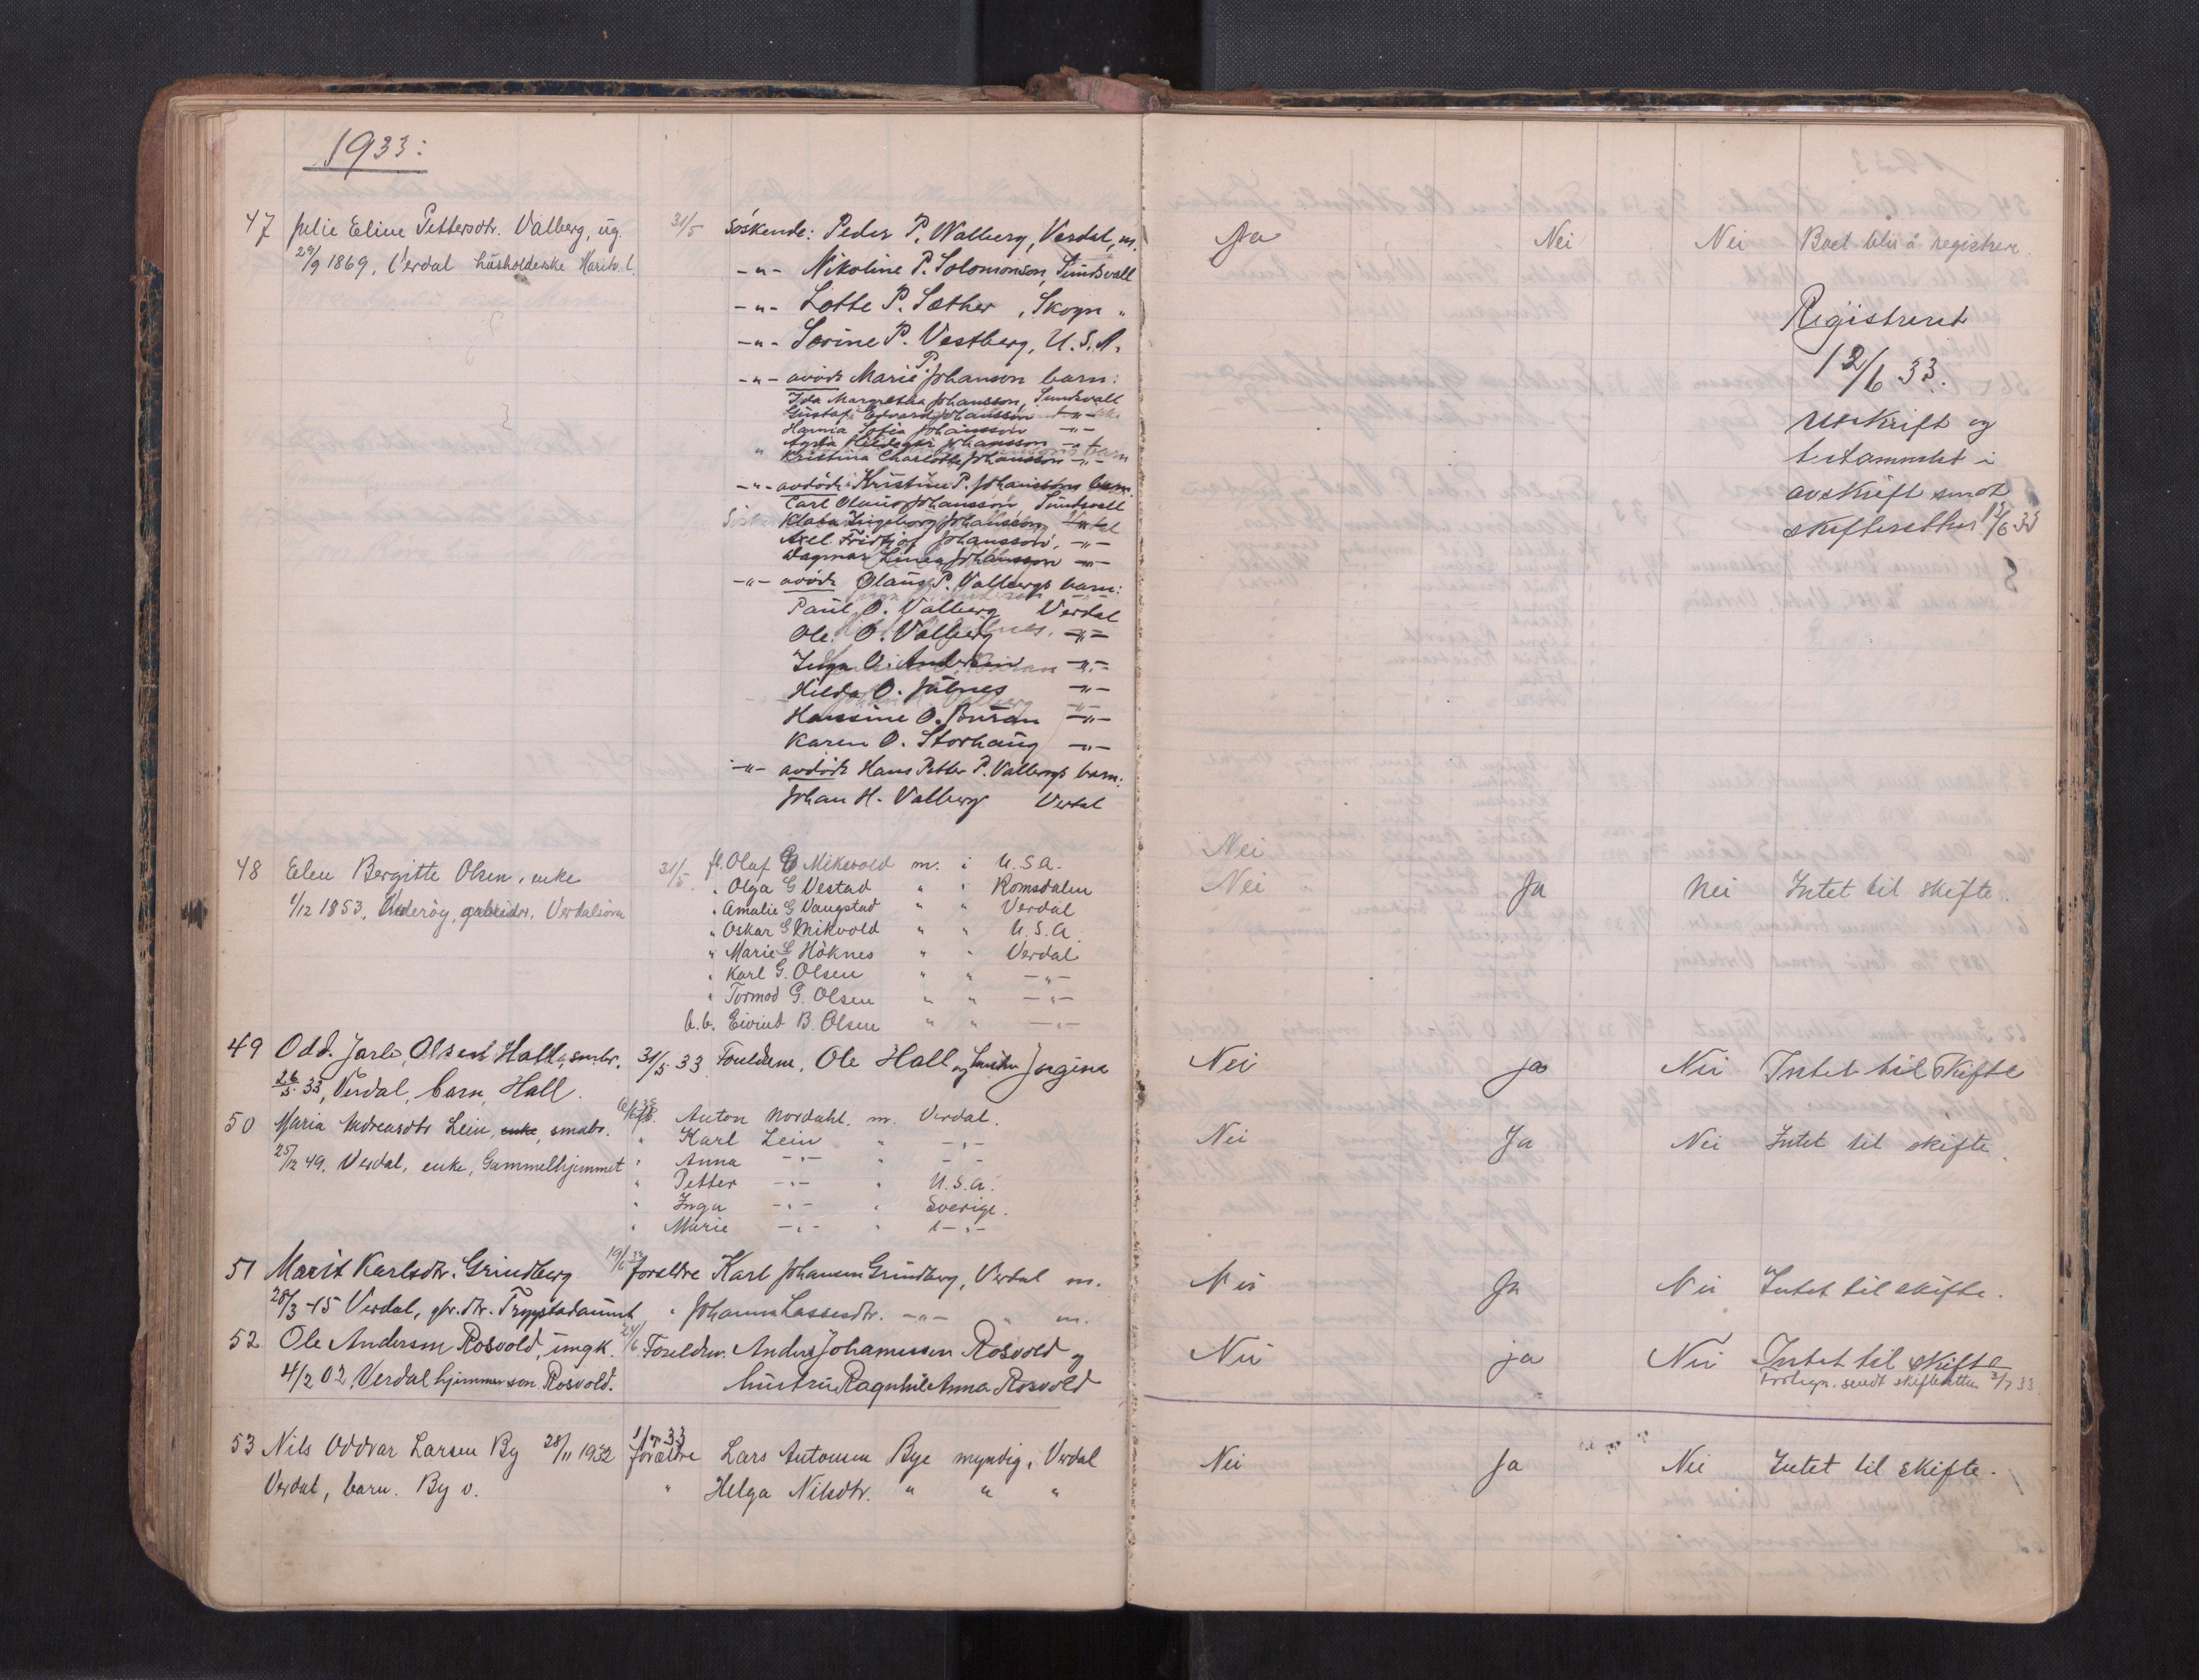 1933:
47 Julie Eline Pettersdtr. Valberg, ug. 31/5 Søskende: Peder P. Walberg, Verdal, m. Ja Nei Nei Boet blir å registrere.
29/9 1869, Verdal husholderske
-"- Nikoline P. Solomonson, Sundsvall
-"- Lotte P. Sæther, Skogn "
-"- Serine P. Vestberg, U.S.A.
Registreret
12/6 33.
-"- avdøde Marie P. Johanson barn:
Ida Margretha Johansson, Sundsvall
Gustaf Edvard Johansson -"-
Hanna Sofia Johansson -"-
Johansson -"-
Kristina Charlotte Johansson -"-
Utskrift og
i
avskrift sendt
skifteretten 12/6 33
-"- avdøde Kristine P. Johansons barn
Carl Olaus Johansson Sundsvall
Klara Ingeborg Johansson
Axel Fridtjof Johansson, -"-
Dagmar Linea Johansson -"-
-"- avdøde Olaus P. Valbergs barn:
Paul O. Valberg Verdal
Ole O. Valberg -"-
Inga O. -"-
Hilda O. Julnes -"-
Hansine O. Buran -"-
Karen O. Storhaug -"-
-"- avdøde Hans Petter P. Valbergs barn:
Johan H. Valberg Verdal
48 Elen Bergitte Olsen, enke 31/5 fl. Olaf G Mikvold m. i U.S.A. Nei
" Olga G Vestad " " Romsdalen Nei Ja Nei Intet til skifte.
1/12 1853, Inderøy, Verdalsøra " Amalie G Vangstad " " Verdal
" Oskar G Mikvold " " U.S.A.
" Marie G Høknes " " Verdal
" Karl G. Olsen " " -"-
" Tormod G. Olsen " " -"-
b.b. Eivind B. Olsen " " -"-
49 Odd Jarle Olsen Hall, smbr. 31/5 33 Foreldrene, Ole Hall og hustru Jørgine Nei ja Nei Intet til Skifte
26/5 33, Verdal, barn, Hall.
50 Maria Andreasdtr Lein, enke, smabr. Anton Nordahl. m. Verdal. Nei Ja Nei Intet til skifte.
" Karl Lein " -"-
25/12 49. Verdal, enke, Gammelhjemmet " Anna -"- " -"-
" Petter -"- " U.S.A.
" Inga -"- " Sverige.
" Marie -"- " -"-
51 Marit Karlsdtr. Grindberg 19/6 33 foreldre Karl Johansen Grindberg, Verdal m. Nei Ja Nei Intet til skifte.
28/3 -15 Verdal, gbr. dtr. " Johanna Lassesdtr. -"- " m.
52 Ole Andersen Rosvold, ungk. 24/6 Foreldre. Anders Johannessen Rosvold og Nei ja Nei Intet til skifte
4/2 02, Verdal hjemmev. søn Rosvold. hustru Ragnhild Anna Rosvold sendt skifteretten 3/7 33
53 Nils Oddvar Larsen By 28/11 1932 1/7 33 foreldre Lars Antonsen Bye myndig, Verdal Nei Ja Nei Intet til skifte.
Verdal, barn. By v. " Helga Nilsdtr. " " "